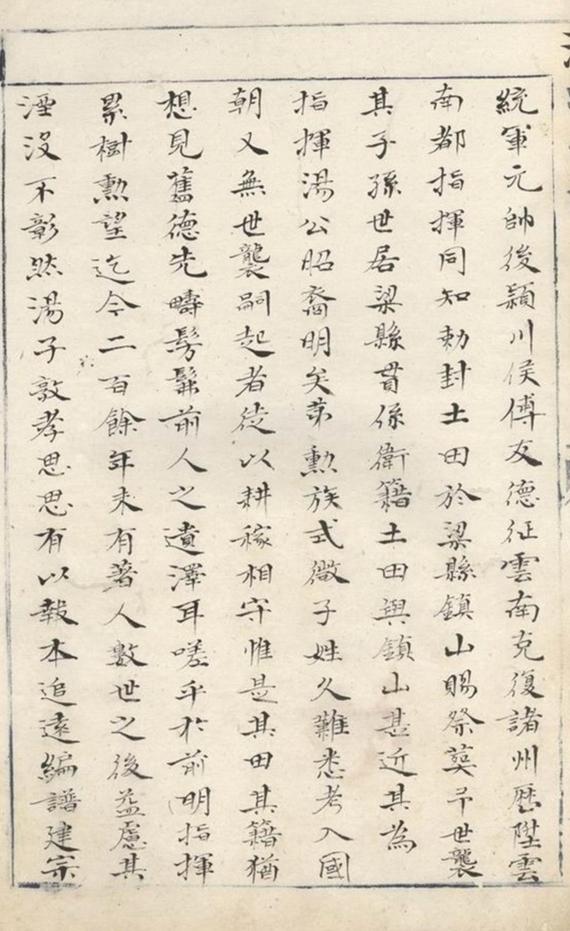 統軍元帥後穎川侯傅友德征雲南克復諸州歷陞雲
南都指揮同知勅封土田於梁縣鎮山賜祭葬予世襲
其子孫世居梁縣貫係衛籍土田與鎮山甚近其為
指揮湯公昭裔明矣第勲族式微子姓久難悉考入國
朝又無世襲嗣起者徒以耕稼相守惟是其田其籍猶
想見舊德先疇髣髴前人之遺澤耳嗟乎於前明指揮
累樹勲望迄今二百餘年未有著人數世之後益慮其
湮没不彰然湯子敦孝思思有以報本追遠編譜建宗